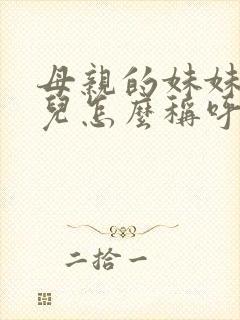 母親的妹妹
兒怎麼稱呼
二拾一